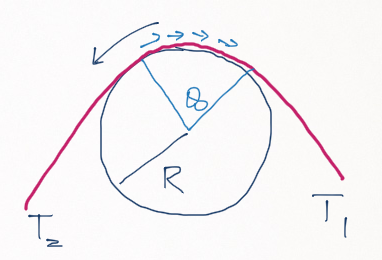 θ₀
R
T₂
T₁